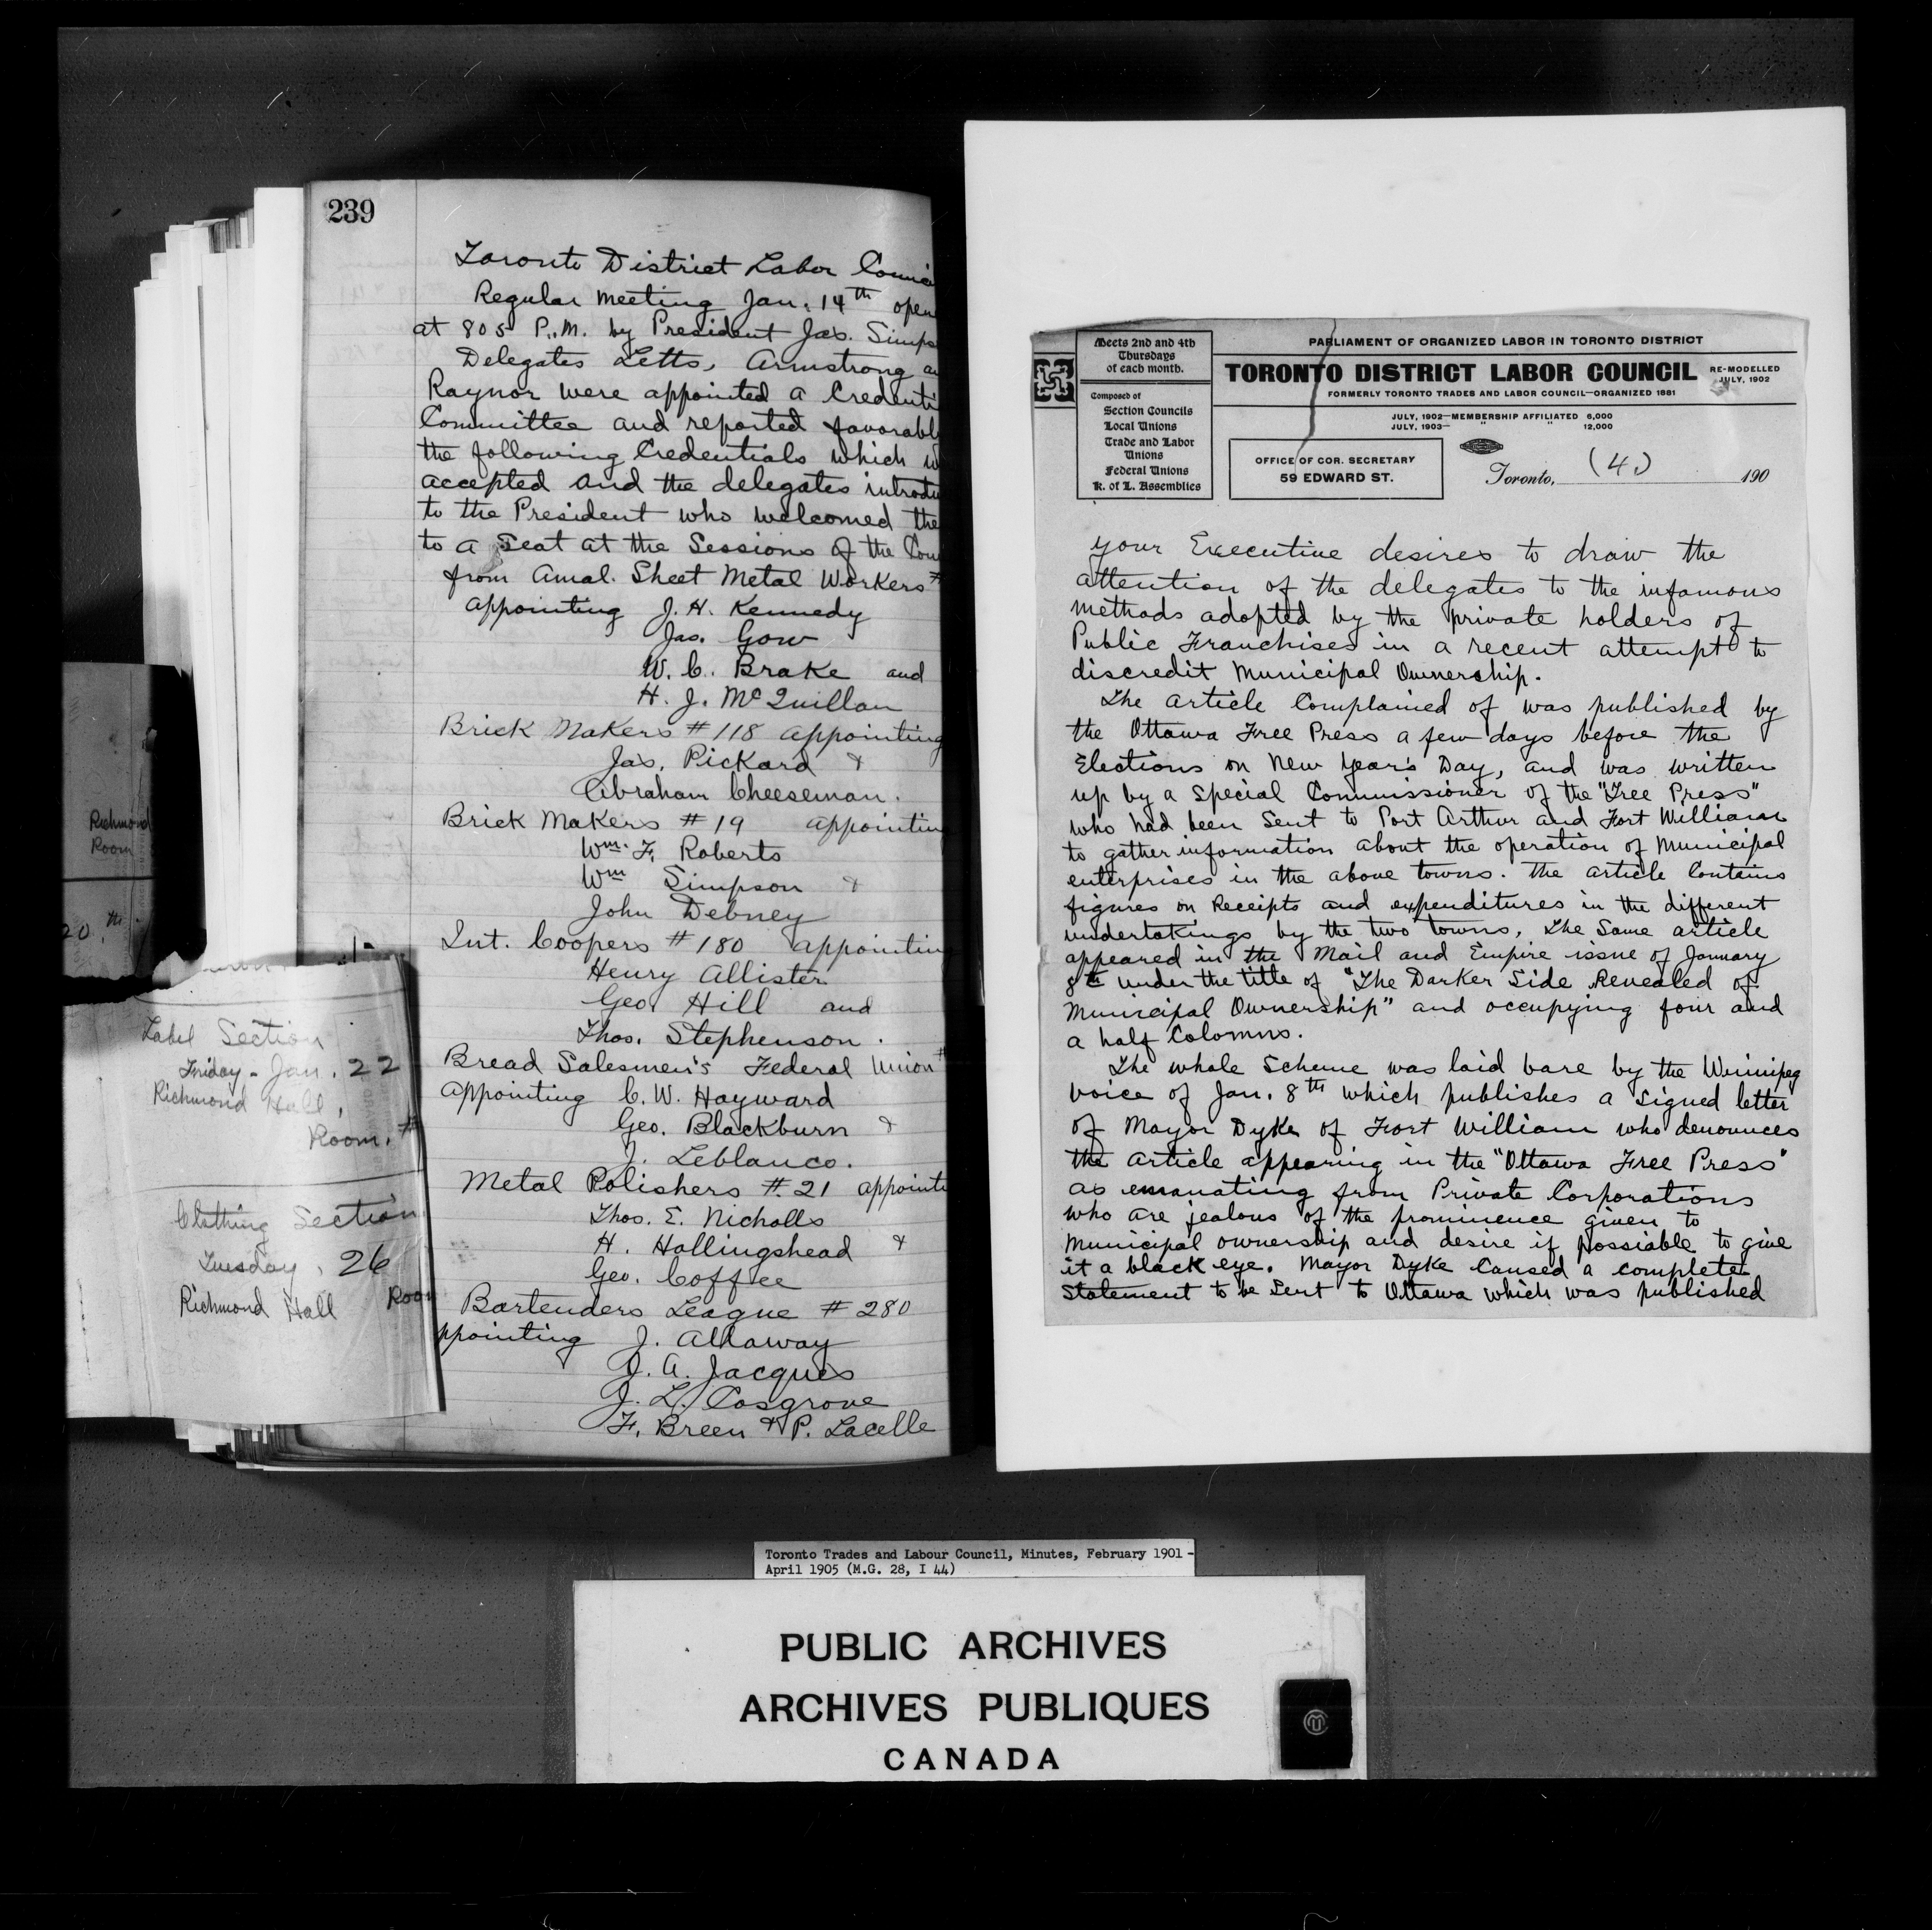 239
Toronto District Labor
Regular Meeting Jan. 14th
at 805 P.M. by President Jas.
Delegates Letts, Armstrong
Raynor were appointed a
Committee and reported
the following Credentials which
accepted and the delegates
to the President who welcomed
to a Seat at the Sessions of the
from Amal. Sheet Metal Workers #
appointing J. H. Kennedy
Jas. Gow
W. C. Brake and
H. J. McQuillan
Brick Makers # 118 appointing
Jas. Pickard &
Abraham Cheeseman.
Brick Makers # 19
Wm. F. Roberts
Wm Simpson &
John Debney
Int. Coopers # 180
Henry Allister
Geo Hill and
Thos. Stephenson.
Bread Salesmen's Federal Union #
appointing C. W. Hayward
Geo. Blackburn &
J. Leblanco.
Metal Polishers #. 21
Thos. E. Nicholls
H. Hollingshead &
Geo. Coffee
Bartenders League # 280
ppointing J. Allaway
J. A. Jacques
J. L. Cosgrove
F. Breen & P. Lacelle
Richmond
Room
20.th
Label Section
Friday - Jan. 22
Richmond Hall,
Room. #
Clothing Section
Tuesday, 26
Richmond Hall
Meets 2nd and 4th
Thursdays
of each month.
Composed of
Section Councils
Local Unions
Trade and Labor
Unions
Federal Unions
K. of L. Assemblies
PARLIAMENT OF ORGANIZED LABOR IN TORONTO DISTRICT
TORONTO DISTRICT LABOR COUNCIL
RE-MODELLED
JULY, 1902
FORMERLY TORONTO TRADES AND LABOR COUNCIL—ORGANIZED 1881
JULY, 1902—MEMBERSHIP AFFILIATED 6,000
JULY, 1903— " " 12,000
OFFICE OF COR. SECRETARY
59 EDWARD ST.
Toronto, (4) 190
your Executive desires to draw the
attention of the delegates to the infamous
methods adopted by the private holders of
Public Franchises in a recent attempt to
discredit Municipal Ownership.
The article Complained of was published by
the Ottawa Free Press a few days before the
Elections on New Year's Day, and was written
up by a Special Commissioner of the "Free Press"
who had been Sent to Port Arthur and Fort William
to gather information about the operation of Municipal
enterprises in the above towns. The article Contains
figures on Receipts and expenditures in the different
undertakings by the two towns. The Same article
appeared in the Mail and Empire issue of January
8th under the title of "The Darker Side Revealed of
Municipal Ownership" and occupying four and
a half Colomns.
The whole Scheme was laid bare by the Winnipeg
Voice of Jan. 8th which publishes a signed letter
of Mayor Dyke of Fort William who denounces
the article appearing in the "Ottawa Free Press"
as emanating from Private Corporations
who are jealous of the prominence given to
Municipal ownership and desire if possiable to give
it a black eye. Mayor Dyke Caused a complete
Statement to be Sent to Ottawa which was published
Toronto Trades and Labour Council, Minutes, February 1901 -
April 1905 (M.G. 28, I 44)
PUBLIC ARCHIVES
ARCHIVES PUBLIQUES
CANADA